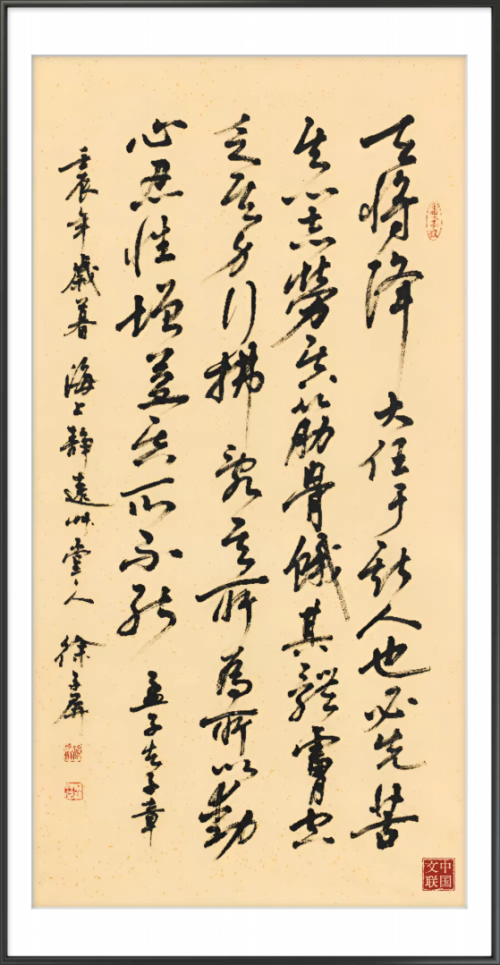 天将降大任于斯人也必先苦
其心志勞其筋骨餓其體膚空
乏其身行拂亂其所為所以動
心忍性增益其所不能 孟子告子章
壬辰年歲暮 海上靜遠艸堂人 徐子屏
中国文联